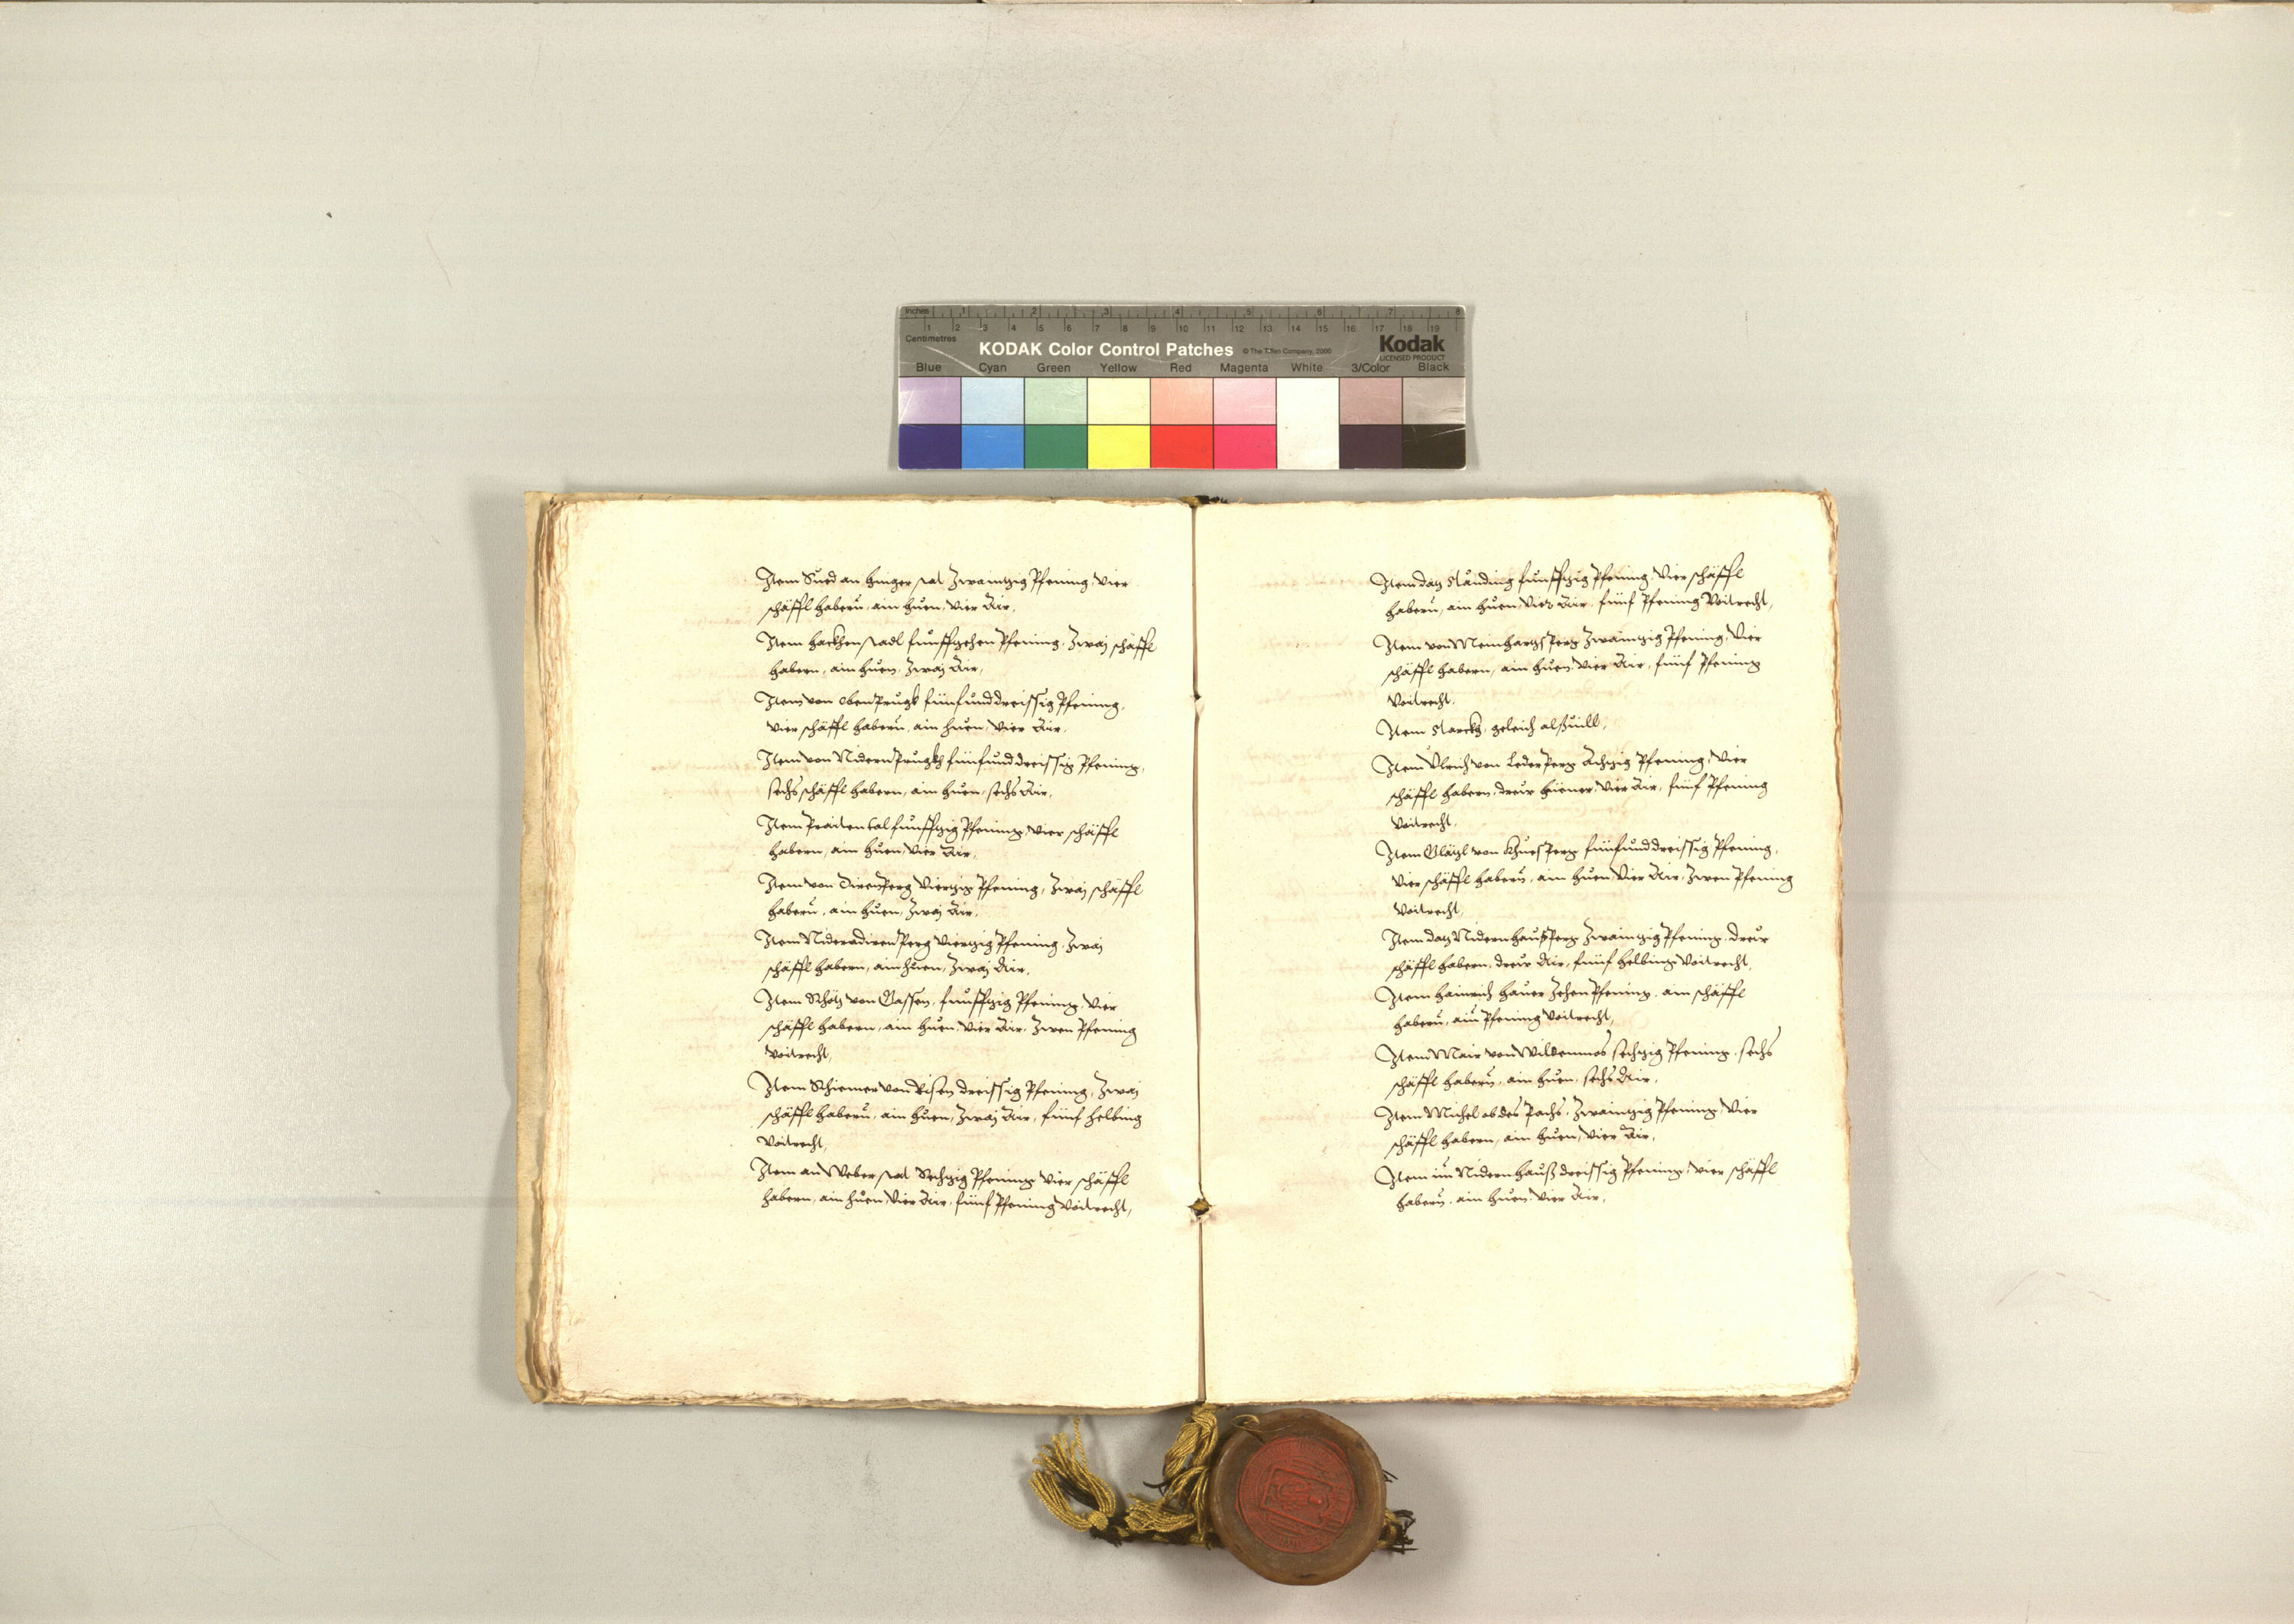 Inches 1 2 3 4 5 6 7 8
1 2 3 4 5 6 7 8 9 10 11 12 13 14 15 16 17 18 19
Centimetres
KODAK Color Control Patches © The Tiffen Company, 2000 Kodak
LICENSED PRODUCT
Blue Cyan Green Yellow Red Magenta White 3/Color Black
Item an zwaintzig Pfening, Vier
schäffl habern, ain huen, Vier Air,
Item funffzehen Pfening, Zwaj schäffl
habern, ain huen, Zwaj Air,
Item von Obenprugk fünfunddreissig Pfening,
Vier schäffl habern, ain huen, Vier Air,
Item von Nidernprugkh fünfunddreissig Pfening,
sechs schäffl habern, ain huen, sechs Air,
Item Praitental funffzig Pfening, Vier schäffl
habern, ain huen, Vier Air,
Item von Direnperg Viertzig Pfening, Zwaj schäffl
habern, ain huen, Zwaj Air,
Item Niderndirenperg Viertzig Pfening, Zwaj
schäffl habern, ain huen, Zwaj Air,
Item von Gassen, funffzig Pfening, Vier
schäffl habern, ain huen, Vier Air, Zwen Pfening
Voitrecht,
Item von dreissig Pfening, Zwaj
schäffl habern, ain huen, Zwaj Air, fünf helbing
Voitrecht,
Item an Weber Sechzig Pfening Vier schäffl
habern, ain huen, Vier Air, fünf Pfening Voitrecht,
Item datz funffzig Pfening, Vier schäffl
habern, ain huen, Vier Air, fünf Pfening Voitrecht,
Item von Zwaintzig Pfening, Vier
schäffl habern, ain huen, Vier Air, fünf Pfening
Voitrecht,
Item geleich alsuill,
Item Ulrich von Lederperg Achtzig Pfening, Vier
schäffl habern, dreur hüener, Vier Air, fünf Pfening
Voitrecht,
Item von fünfunddreissig Pfening,
Vier schäffl habern, ain huen, Vier Air, Zwen Pfening
Voitrecht,
Item datz Nidernhausperg Zwaintzig Pfening, dreur
schäffl habern, dreur Air, fünf helbing Voitrecht,
Item Hainrich Hauer Zehen Pfening, ain schäffl
habern, ain Pfening Voitrecht,
Item Mair von Wildenmos sechtzig Pfening, sechs
schäffl habern, ain huen, sechs Air,
Item Michel ob des Pachs, Zwaintzig Pfening, Vier
schäffl habern, ain huen, Vier Air,
Item im Nidernhauß dreissig Pfening, Vier schäffl
habern, ain huen, Vier Air,